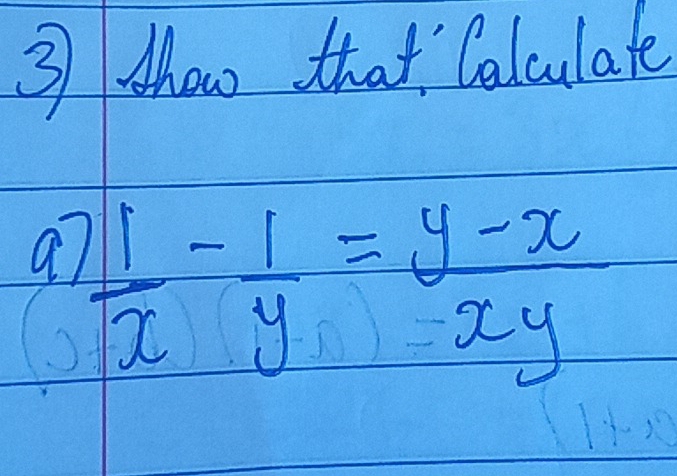 3) Show that: Calculate
a) 1/x - 1/y = y-x/xy